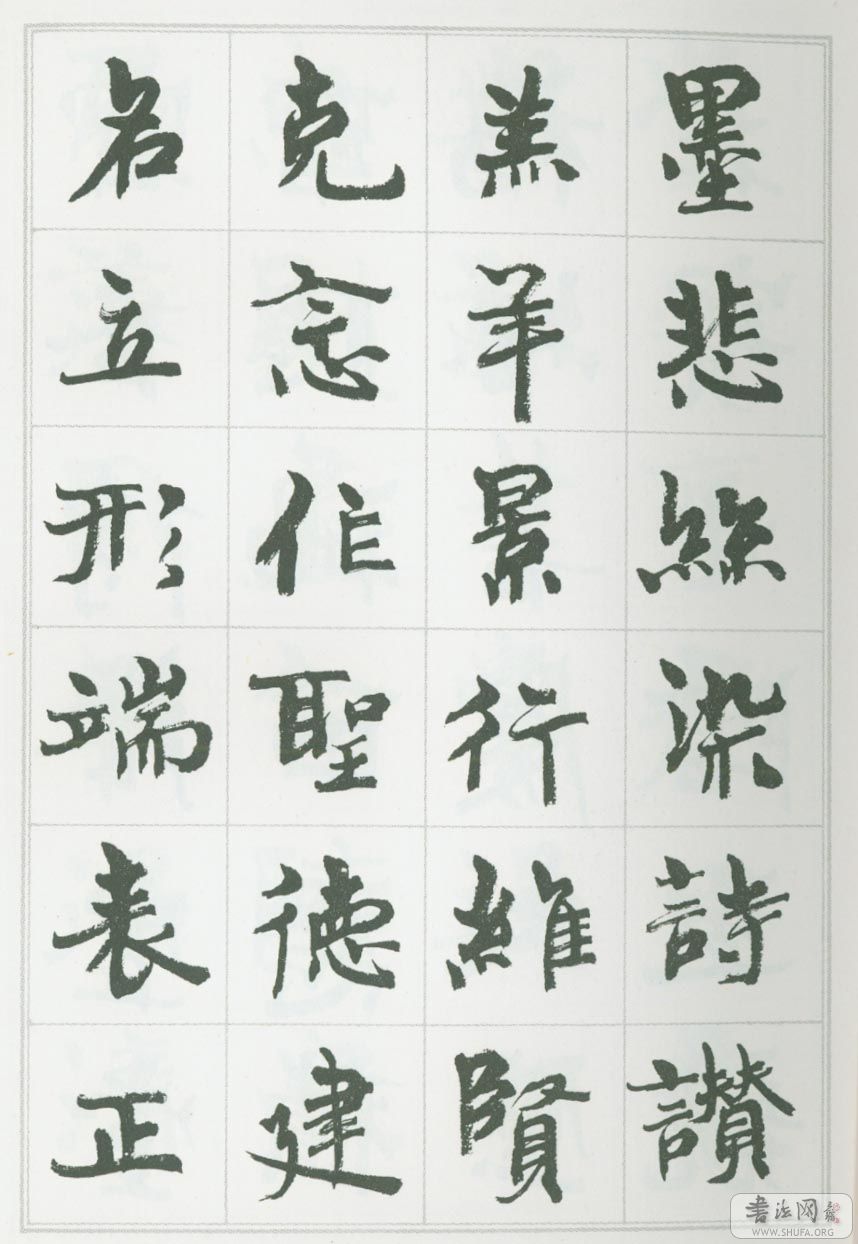 墨悲絲染詩讃
羔羊景行維賢
克念作聖德建
名立形端表正
书法网
WWW.SHUFA.ORG